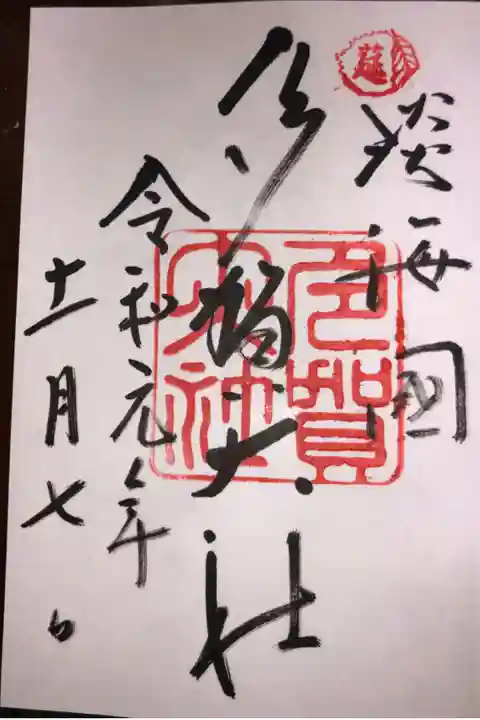 莚
淡海國
多賀大社
多賀大社
令和元年
十一月七日